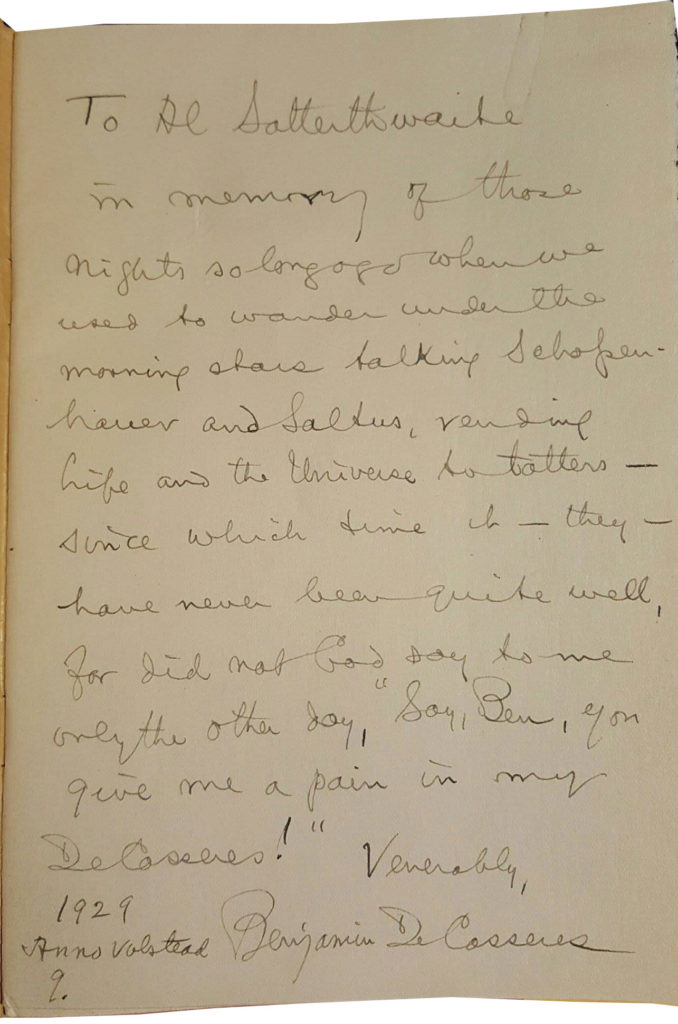 To Al Satterthwaite
in memory of those
nights so long ago when we
used to wander under the
morning stars talking Schopen-
hauer and Saltus, rending
Life and the Universe to tatters —
since which time it — they —
have never been quite well,
for did not God say to me
only the other day, "Say, Ben, you
give me a pain in my
DeCasseres!" Venerably,
1929
Anno Volstead Benjamin DeCasseres
9.